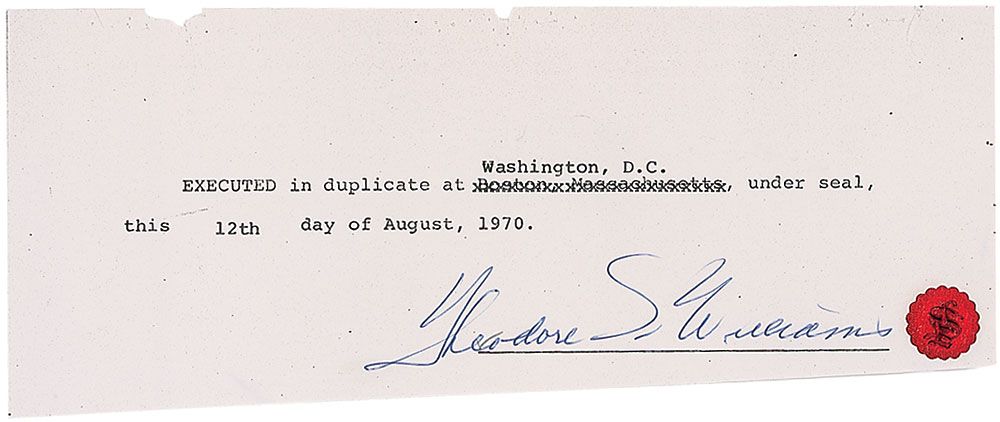 Washington, D.C.
EXECUTED in duplicate at Boston, Massachusetts, under seal,
this 12th day of August, 1970.
Theodore S. Williams